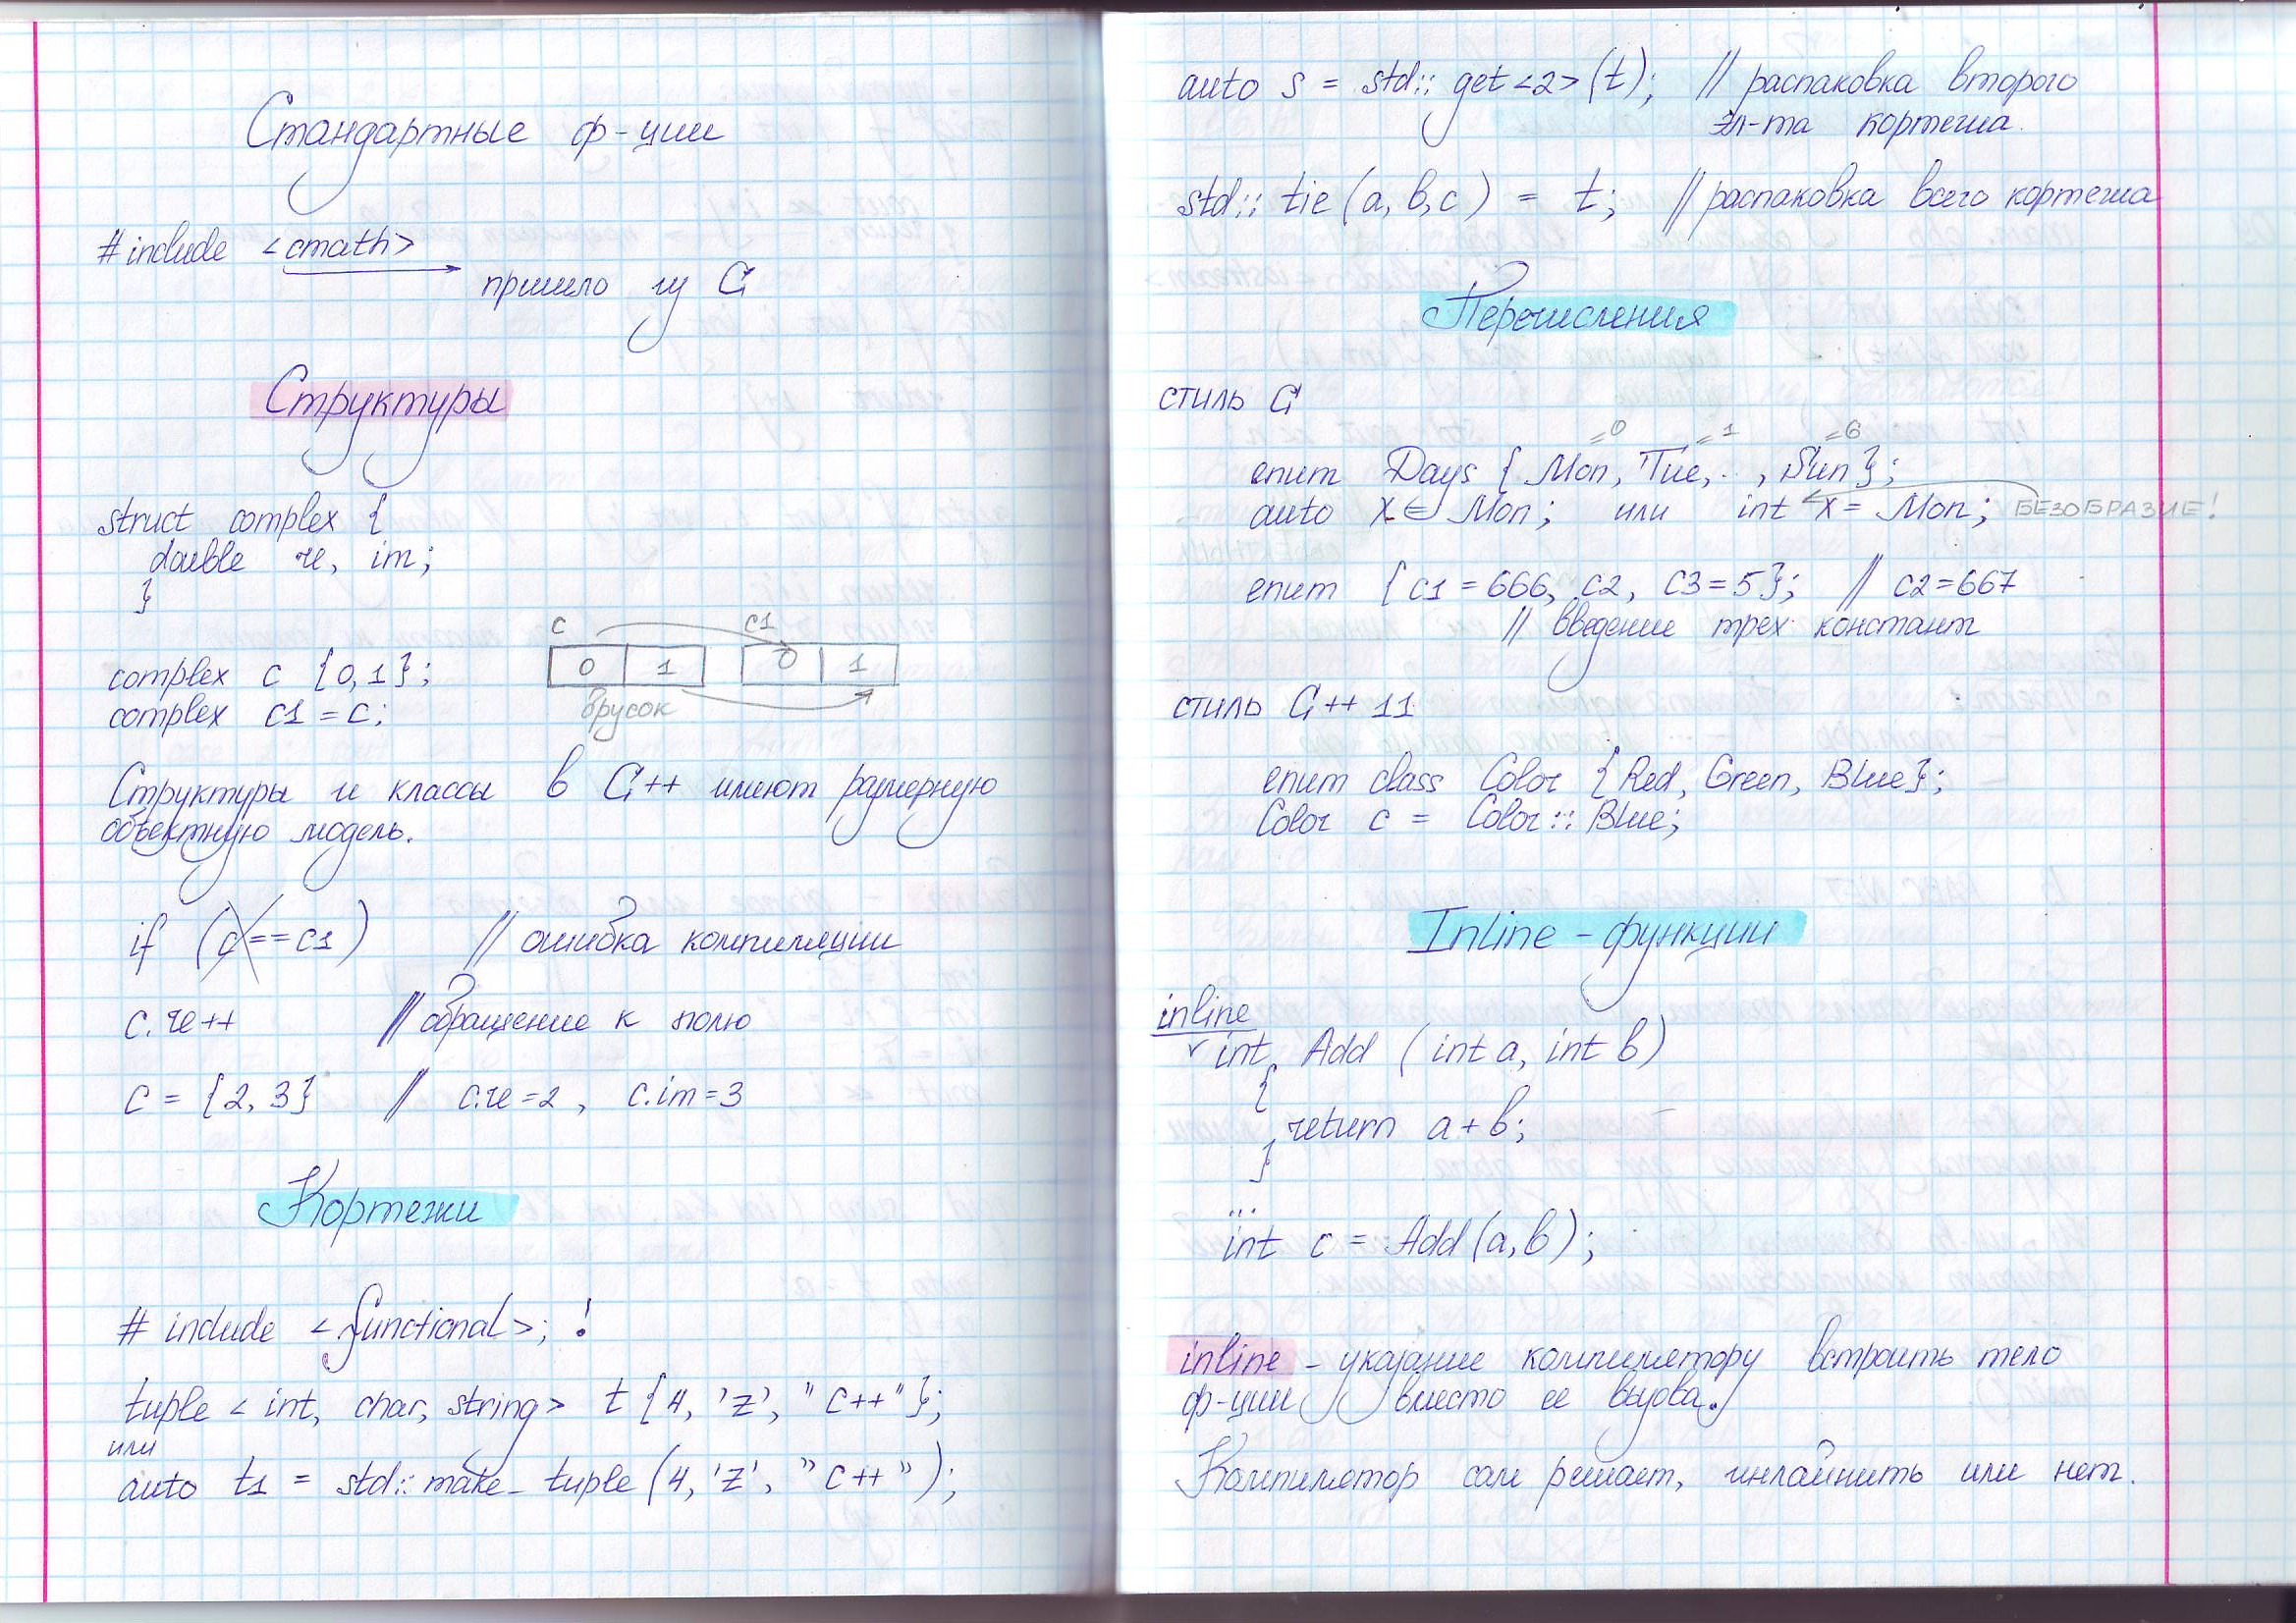 Стандартные ф-ции
#include <cmath>
пришло из C
Структуры
struct complex {
double re, im;
}
complex c {0,1};
complex c1 = c;
c c1
0 1 0 1
брусок
Структуры и классы в C++ имеют размерную
объектную модель.
if (c==c1) // ошибка компиляции
c.re++ // обращение к полю
c = {2, 3} // c.re=2, c.im=3
Кортежи
# include <functional>; !
tuple < int, char, string > t {4, 'z', "C++"};
или
auto t1 = std::make_tuple (4, 'z', "C++");
auto s = std:: get <2> (t); // распаковка второго
эл-та кортежа.
std:: tie (a, b, c) = t; // распаковка всего кортежа
Перечисления
стиль C
=0 =1 =6
enum Days { Mon, Tue, .. , Sun};
auto x = Mon; или int x = Mon; БЕЗОБРАЗИЕ!
enum {c1 = 666, c2, c3 = 5}; // c2=667
// введение трех констант
стиль C++ 11
enum class Color {Red, Green, Blue};
Color c = Color:: Blue;
Inline - функции
inline
int Add (int a, int b)
{
return a+b;
}
...
int c = Add(a, b);
inline - указание компилятору встроить тело
ф-ции вместо ее вызова.
Компилятор сам решает, инлайнить или нет.